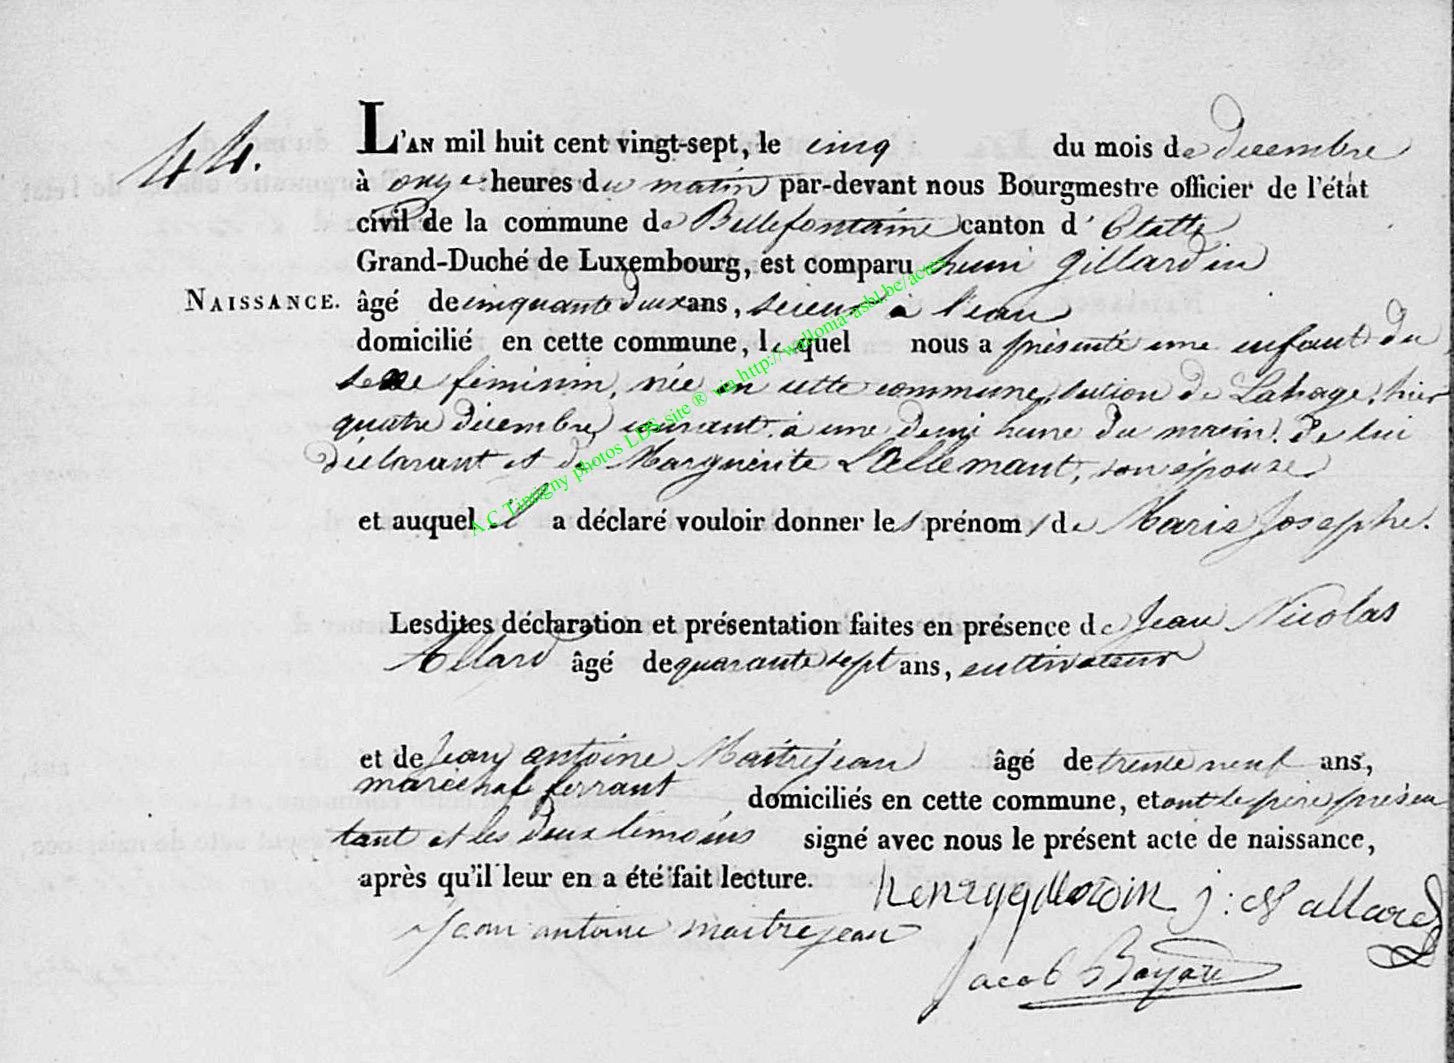 44.
L'AN mil huit cent vingt-sept, le cinq du mois de decembre
à onze heures du matin par-devant nous Bourgmestre officier de l'état
civil de la commune de Bellefontaine canton d' Etalle
Grand-Duché de Luxembourg, est comparu henri gillardin
NAISSANCE. âgé de cinquante deux ans, scieur à l'eau
domicilié en cette commune, lequel nous a présenté une enfant du
sexe féminin, née en cette commune, section de Lahage, hier
quatre décembre courant. à une demi heure du matin. de lui
déclarant et de Marguerite Lallemant, son épouse
et auquel il a déclaré vouloir donner les prénoms de Marie Josephe.
Lesdites déclaration et présentation faites en présence de Jean Nicolas
Allard âgé de quarante sept ans, cultivateur
et de Jean antoine Maitrejean âgé de trente neuf ans,
maréchal ferrant domiciliés en cette commune, et ont le père présen
tant et les deux témoins signé avec nous le présent acte de naissance,
après qu'il leur en a été fait lecture. henry gillardin j: N allard
jean antoine maitrejean
Jacob Bayard
A.C Tintigny photos LDS site ® via http://wallonia-asbl.be/actes